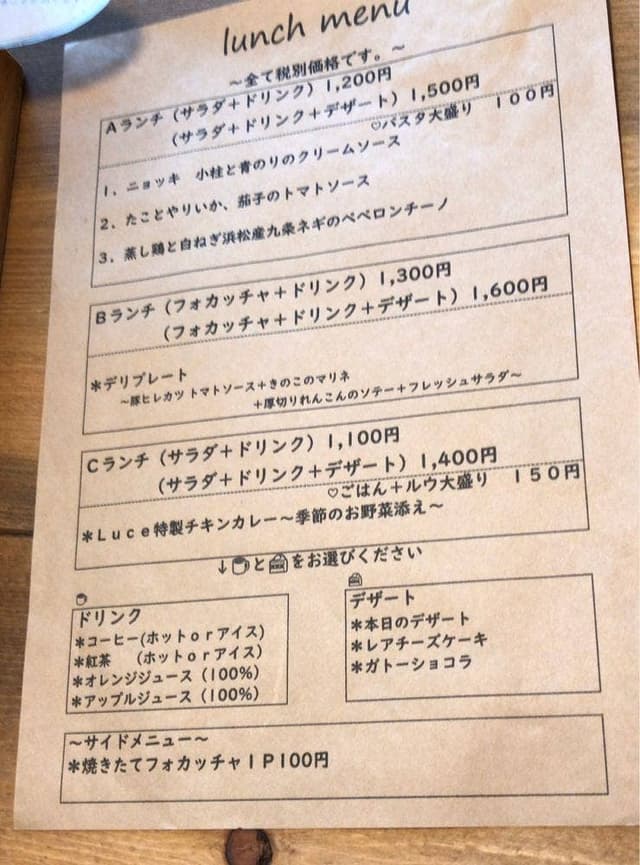 lunch menu
～全て税別価格です。～
Aランチ（サラダ＋ドリンク）1,200円
（サラダ＋ドリンク＋デザート）1,500円
♡パスタ大盛り　１００円
1．ニョッキ　小柱と青のりのクリームソース
2．たことやりいか、茄子のトマトソース
3．蒸し鶏と白ねぎ浜松産九条ネギのペペロンチーノ
Bランチ（フォカッチャ＋ドリンク）1,300円
（フォカッチャ＋ドリンク＋デザート）1,600円
＊デリプレート
～豚ヒレカツ トマトソース＋きのこのマリネ
＋厚切りれんこんのソテー＋フレッシュサラダ～
Cランチ（サラダ＋ドリンク）1,100円
（サラダ＋ドリンク＋デザート）1,400円
♡ごはん＋ルウ大盛り　１５０円
＊Ｌｕｃｅ特製チキンカレー～季節のお野菜添え～
↓☕と🍰をお選びください
ドリンク
＊コーヒー(ホットｏｒアイス)
＊紅茶　（ホットｏｒアイス）
＊オレンジジュース（100%）
＊アップルジュース（100%）
デザート
＊本日のデザート
＊レアチーズケーキ
＊ガトーショコラ
～サイドメニュー～
＊焼きたてフォカッチャ１Ｐ100円